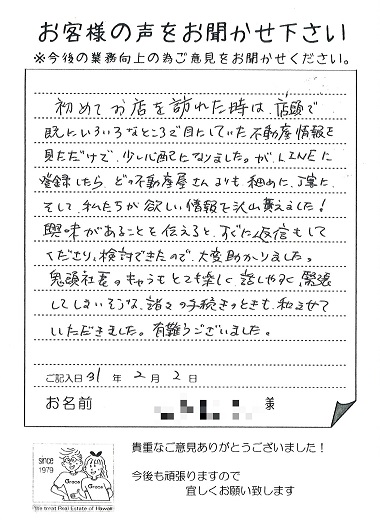 お客様の声をお聞かせ下さい
※今後の業務向上の為ご意見をお聞かせください。
初めてお店を訪れた時は、店頭で
既にいろいろなところで目にしていた不動産情報を
見ただけで、少し心配になりました。が、LINEに
登録したら、どの不動産屋さんよりも細めに、丁寧に
そして、私たちが欲しい情報を沢山貰えました！
興味があることを伝えると、すぐに返信もして
くださり、検討できたので、大変助かりました。
鬼頭社長のきゃらもとても楽しく話しやすく、緊張
してしまいそうな、諸々の手続きのときも、和ませて
いただきました。有難うございました。
ご記入日 31 年 2 月 2 日
お名前 様
貴重なご意見ありがとうございました！
since
1979
Grace
Grace
We treat Real Estate of Hawaii
今後も頑張りますので
宜しくお願い致します